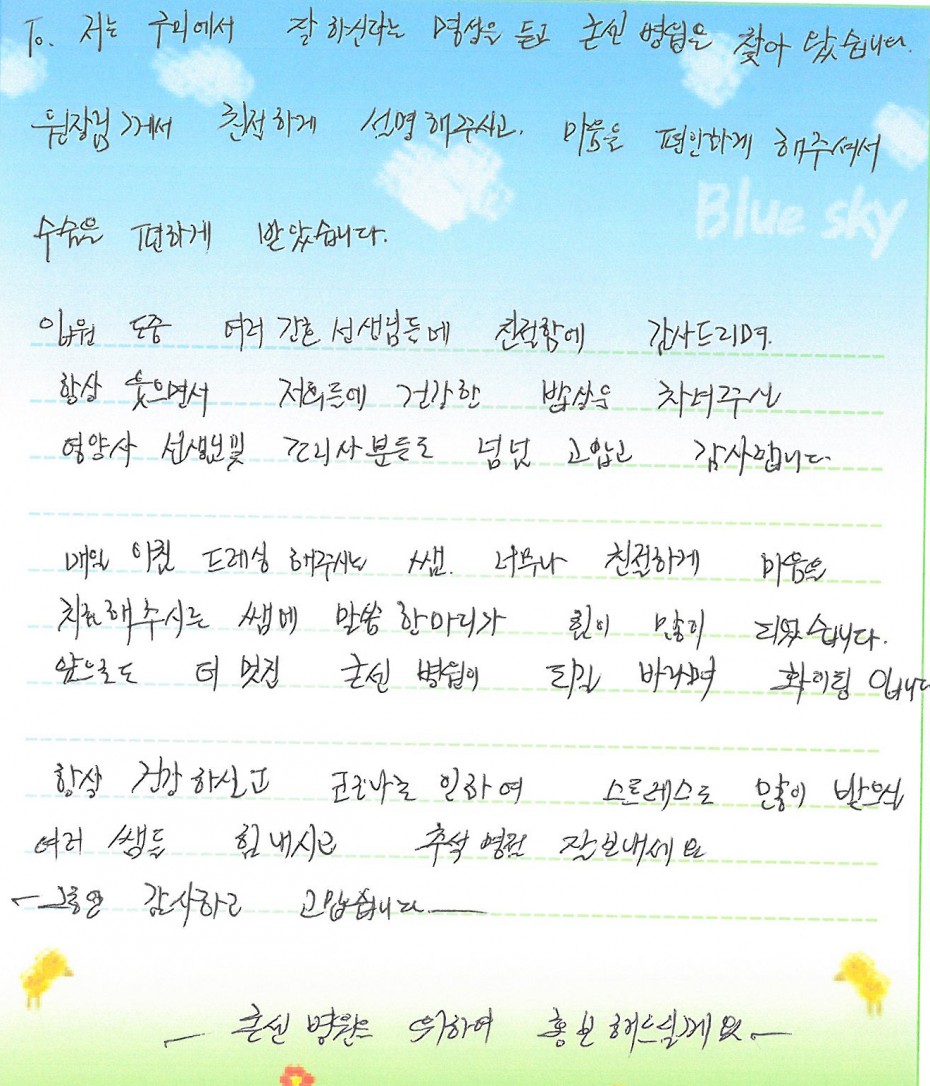 To. 저는 주위에서 잘 하신다는 명성을 듣고 근신 병원을 찾아 왔습니다.
원장님께서 친절하게 설명해주시고. 마음을 편안하게 해주셔서
Blue sky
수술을 편하게 받았습니다.
입원 도중 여러 간호 선생님들에 친절함에 감사드리며.
항상 웃으면서 저희들에 건강한 밥상을 차려주신
영양사 선생님및 조리사분들도 넘넘 고맙고 감사합니다.
매일 아침 드레싱 해주시는 쌤. 너무나 친절하게 마음을
치료해주시는 쌤에 말씀 한마디가 힘이 많이 되었습니다.
앞으로도 더 멋진 근신 병원이 되길 바라며 화이팅 입니다
항상 건강하시고 코로나로 인하여 스트레스도 많이 받으실
여러 쌤들 힘내시고 추석 명절 잘보내세요
- 그동안 감사하고 고맙습니다 -
- 근신 병원을 위하여 홍보 해드릴게요. -